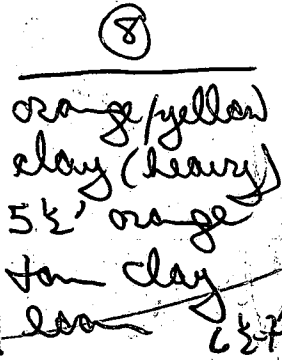 8
orange/yellow
clay (heavy)
5½' orange
tan clay
loam 6½-7